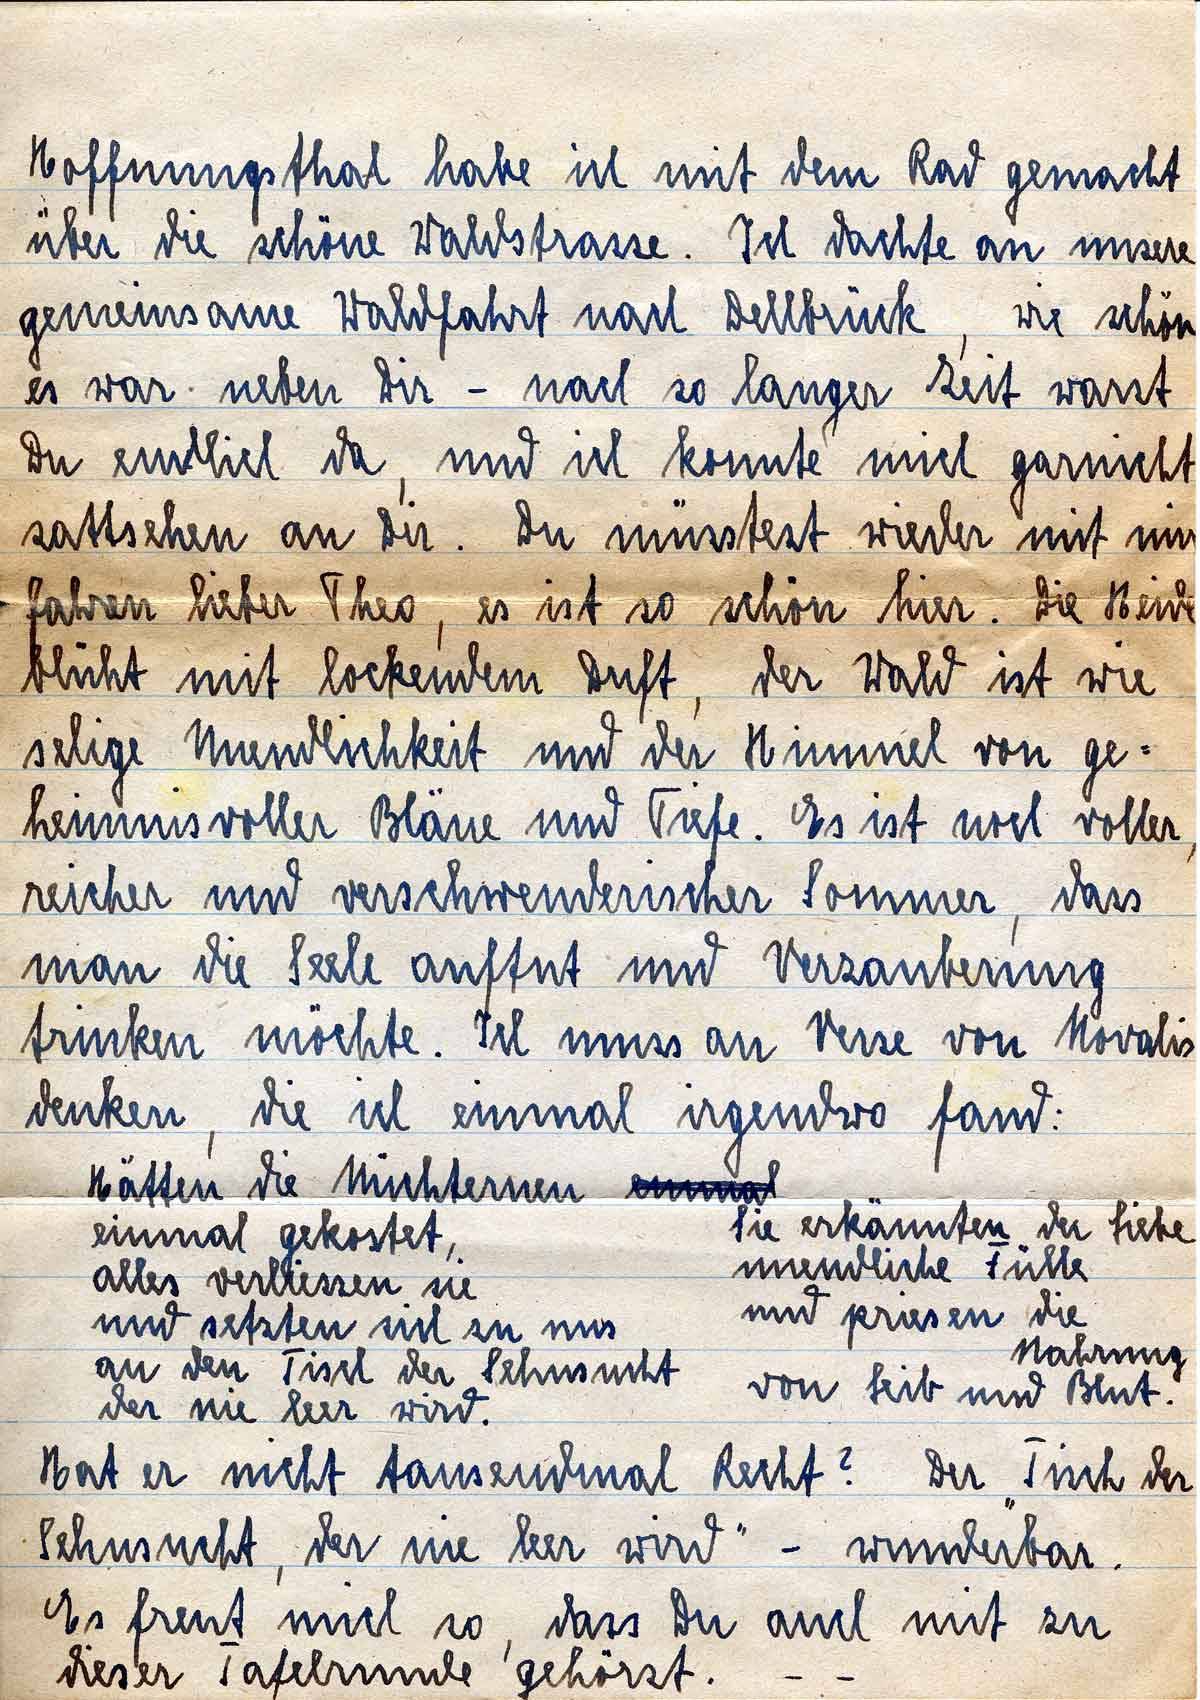 Hoffnungsthal habe ich mit dem Rad gemacht
über die schöne Waldstrasse. Ich dachte an unsere
gemeinsame Waldfahrt nach Dellbrück, wie schön
es war neben Dir - nach so langer Zeit warst
Du endlich da, und ich konnte mich garnicht
sattsehen an Dir. Du müsstest wieder mit mir
fahren lieber Theo, es ist so schön hier. Die Heide
blüht mit lockendem Duft, der Wald ist wie
selige Unendlichkeit und der Himmel von ge=
heimnisvoller Bläue und Tiefe. Es ist noch voller,
reicher und verschwenderischer Sommer, dass
man die Seele auftut und Verzauberung
trinken möchte. Ich muss an Verse von Novalis
denken, die ich einmal irgendwo fand:
Hätten die Nüchternen einmal
einmal gekostet,
alles verliessen sie
und setzten sich zu uns
an den Tisch der Sehnsucht
der nie leer wird.
Sie erkännten der Liebe
unendliche Fülle
und priesen die
Nahrung
von Leib und Blut.
Hat er nicht tausendmal Recht? Der "Tisch der
Sehnsucht, der nie leer wird" - wunderbar.
Es freut mich so, dass Du auch mit zu
dieser Tafelrunde gehörst. - -